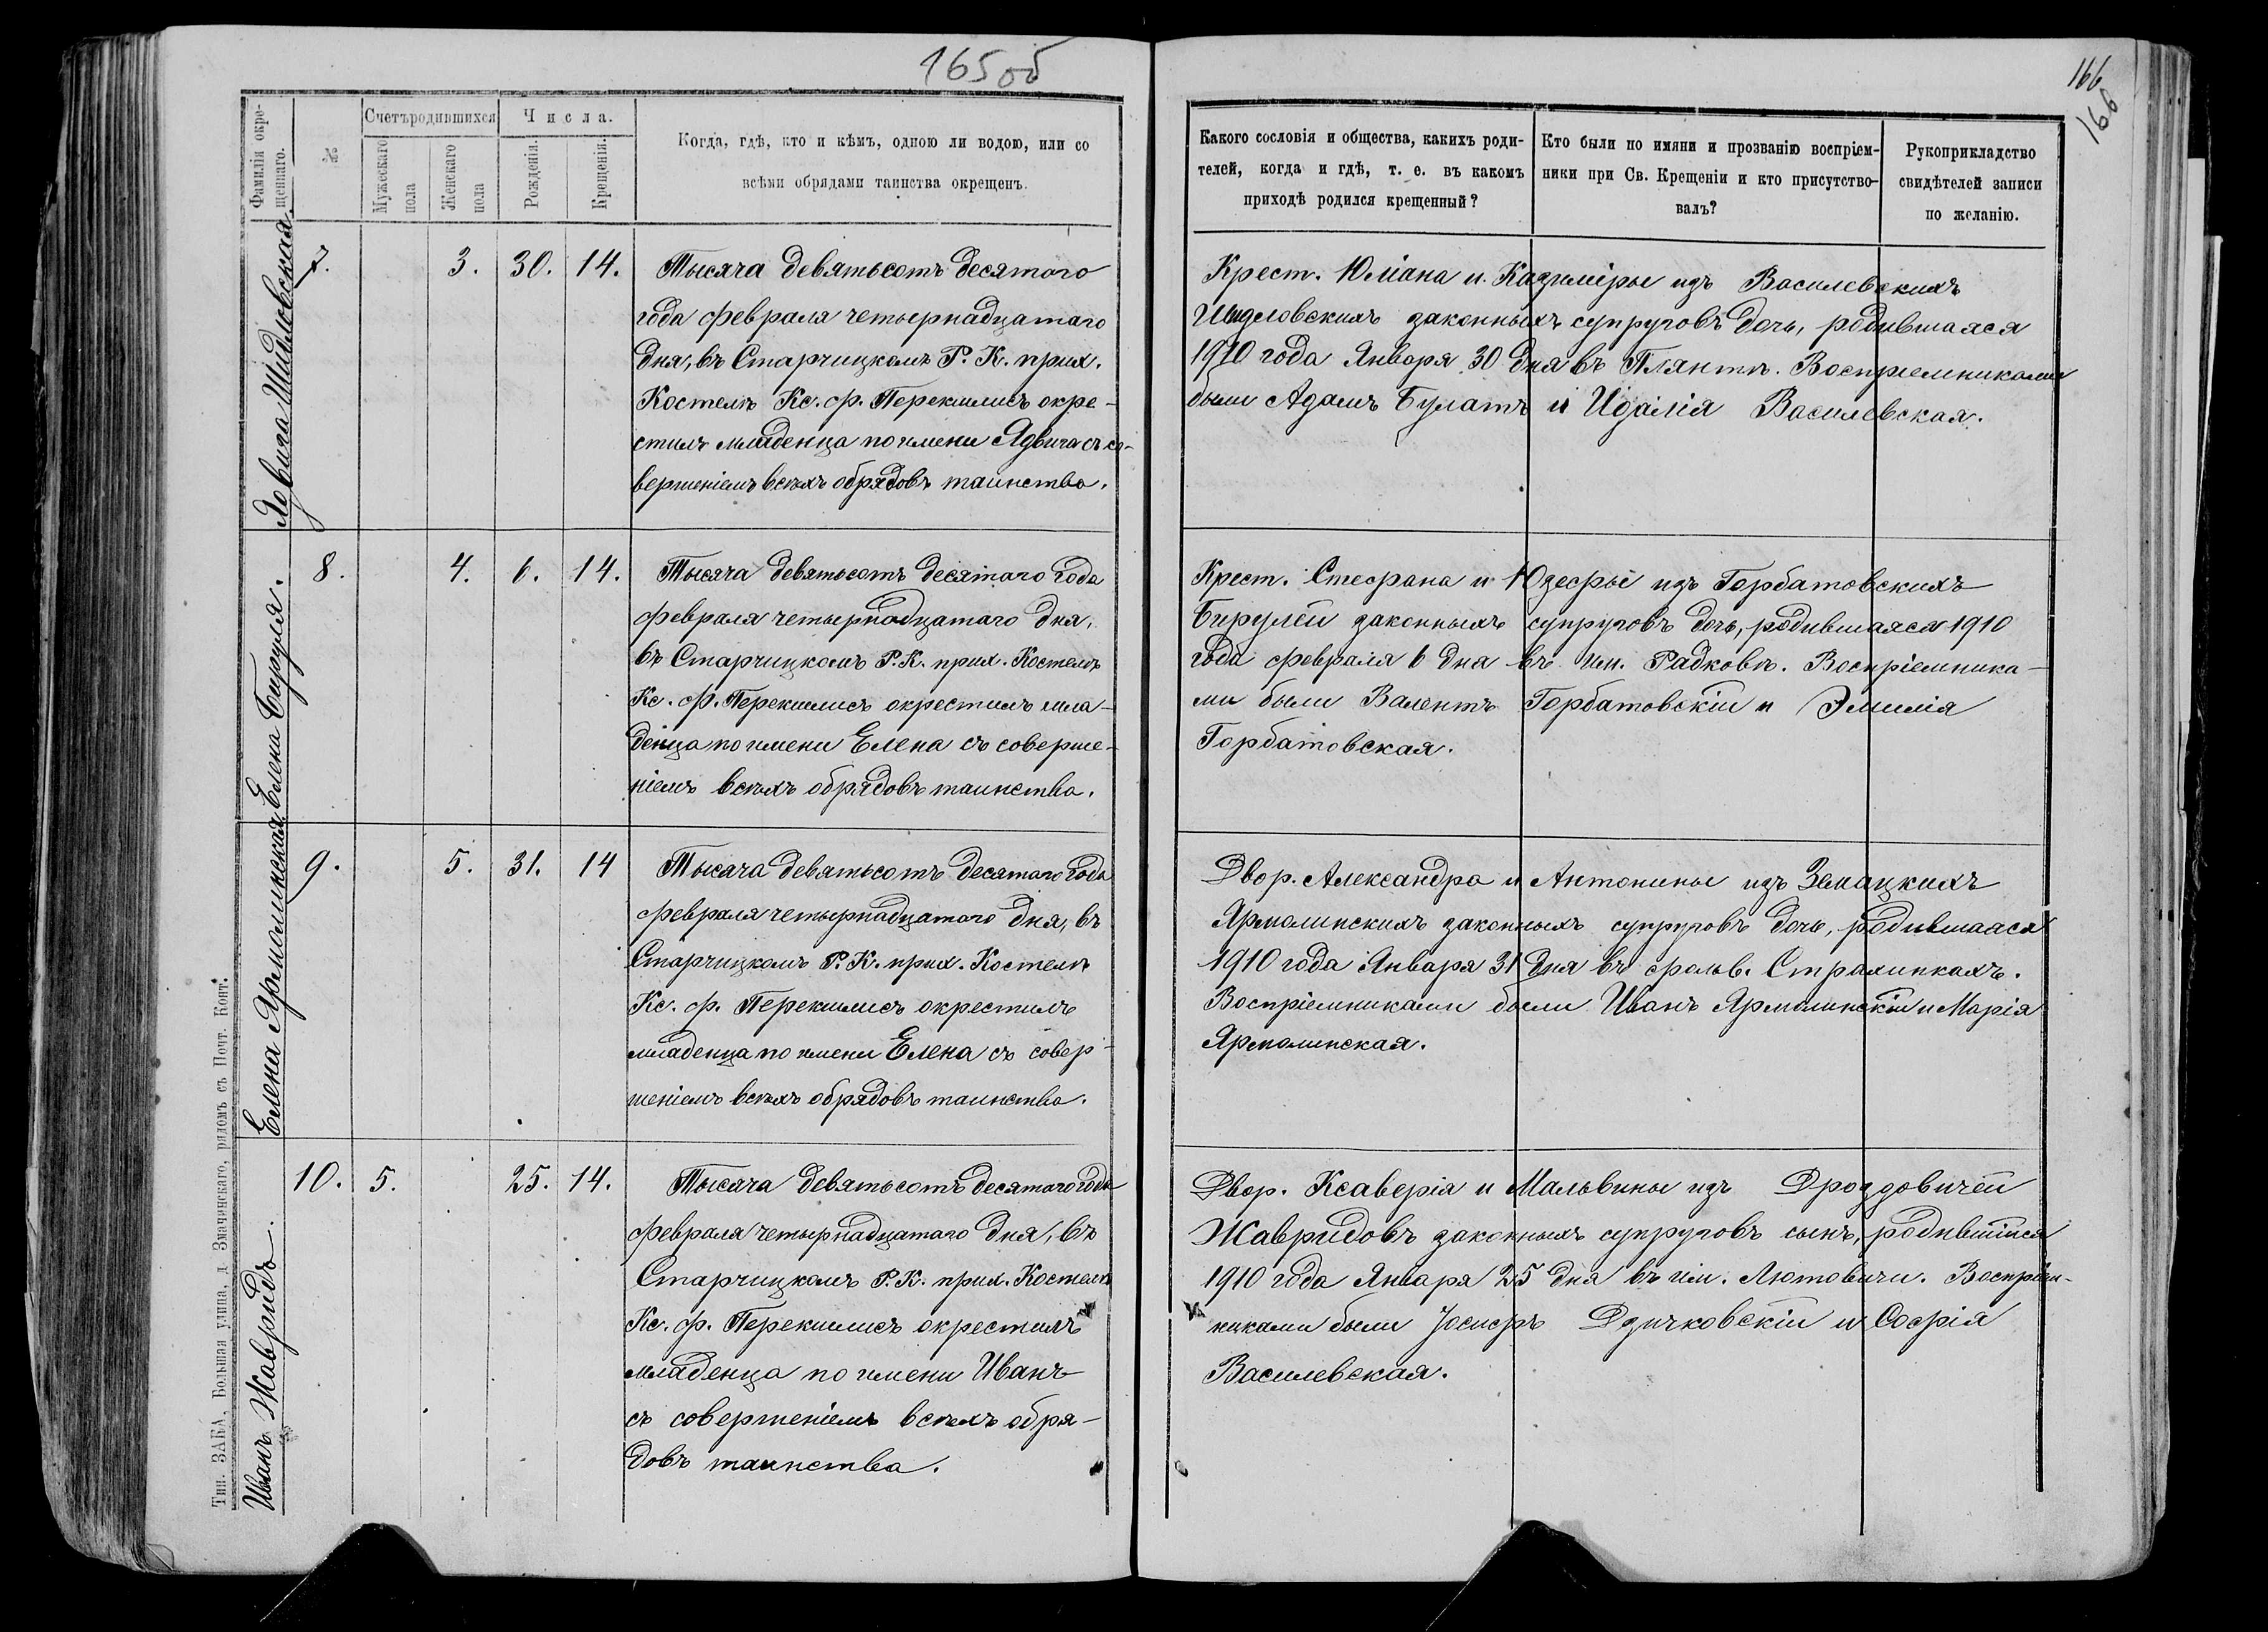 165об
Фамилія окре-
щеннаго.
№
Счетъ родившихся
Мужескаго
пола
Женскаго
пола
Числа.
Рожденія.
Крещенія.
Когда, гдѣ, кто и кѣмъ, одною ли водою, или со
всѣми обрядами таинства окрещенъ.
Ядвига Шидловская.
7.
3.
30.
14.
Тысяча девятьсотъ десятого
года февраля четырнадцатаго
дня, въ Старчицкомъ Р. К. прих.
Костелѣ Кс. ф. Перекшлисъ окре-
стилъ младенца по имени Ядвига съ со-
вершеніемъ всѣхъ обрядовъ таинства.
Елена Бируля.
8.
4.
6.
14.
Тысяча девятьсотъ десятаго года
февраля четырнадцатаго дня,
въ Старчицкомъ Р. К. прих. Костелѣ
Кс. ф. Перекшлисъ окрестилъ мла-
денца по имени Елена съ соверше-
ніемъ всѣхъ обрядовъ таинства.
Елена Ярмолинская
9.
5.
31.
14
Тысяча девятьсотъ десятаго года
февраля четырнадцатого дня, въ
Старчицкомъ Р. К. прих. Костелѣ
Кс. ф. Перекшлисъ окрестилъ
младенца по имени Елена съ совер-
шеніемъ всѣхъ обрядовъ таинства.
Иванъ Жавридъ.
10.
5.
25.
14.
Тысяча девятьсотъ десятаго года
февраля четырнадцатаго дня, въ
Старчицкомъ Р. К. прих. Костелѣ
Кс. ф. Перекшлисъ окрестилъ
младенца по имени Иванъ
съ совершеніемъ всѣхъ обря-
довъ таинства.
Тип. ЗАБА, Большая улица, д. Змачинскаго, рядомъ съ Почт. Конт.
166
166
Какого сословія и общества, какихъ роди-
телей, когда и гдѣ, т. е. въ какомъ
приходѣ родился крещенный?
Кто были по имяни и прозванію воспріем-
ники при Св. Крещеніи и кто присутство-
валъ?
Рукоприкладство
свидѣтелей записи
по желанію.
Крест. Юліана и Казиміры изъ Василевскихъ
Шидловскихъ законныхъ супруговъ дочь, родившаяся
1910 года Января 30 дня въ Плянтѣ. Воспріемниками
были Адамъ Булатъ и Идалія Василевская.
Крест. Стефана и Юзефы изъ Горбатовскихъ
Бирулей законныхъ супруговъ дочь, родившаяся 1910
года февраля 6 дня въ им. Радковѣ. Воспріемника-
ми были Валентъ Горбатовскій и Эмилія
Горбатовская.
Двор. Александра и Антонины изъ Земацкихъ
Ярмолинскихъ законныхъ супруговъ дочь, родившаяся
1910 года Января 31 дня въ фольв. Страхинкахъ.
Воспріемниками были Иванъ Ярмолинскій и Марія
Ярмолинская.
Двор. Ксаверія и Мальвины изъ Дроздовичей
Жавридовъ законныхъ супруговъ сынъ, родившійся
1910 года Января 25 дня въ им. Лютовичи. Воспріем-
никами были Іосифъ Дзичковскій и Софія
Василевская.